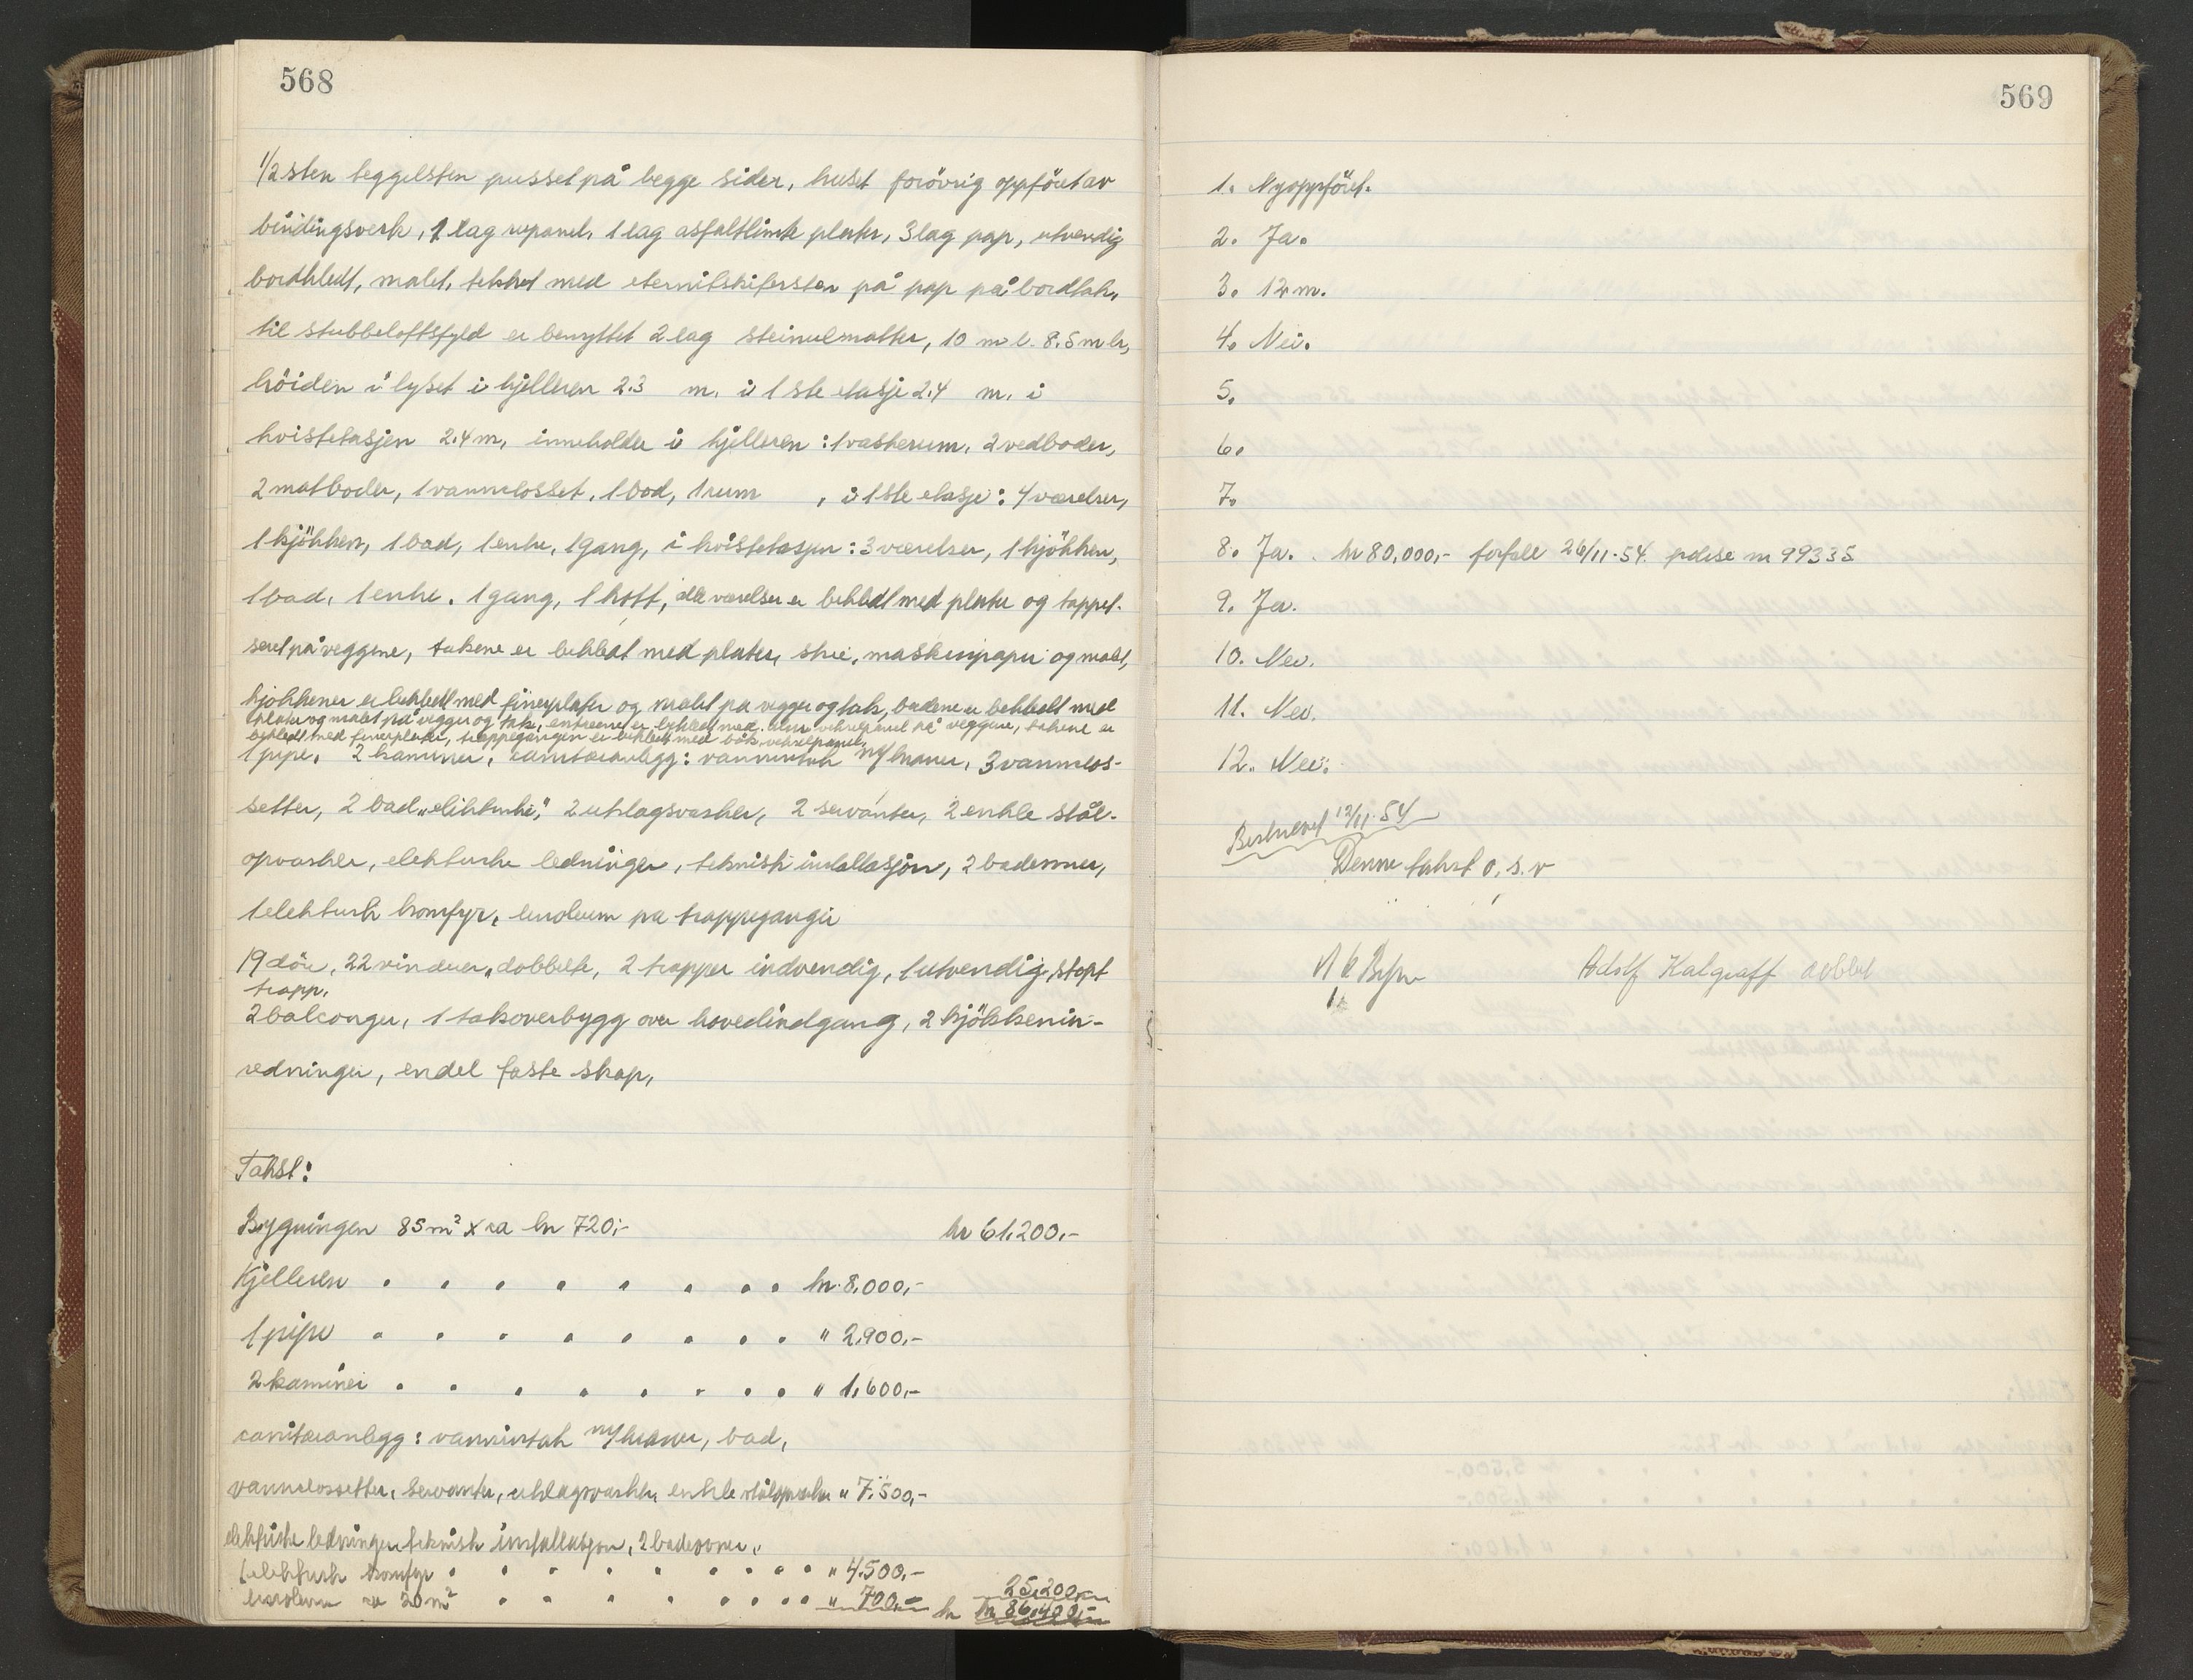 568
1/2 sten teggelsten pusset på begge sider, huset forövrig oppföret av
bindingsverk, 1 lag rupanel, 1 lag asfaltlimte plater, 3 lag pap, utvendig
bordkledt, malet, tekket med eternitskifersten på pap på bordtak,
til stubbeloftsfyld er benyttet 2 lag steinulmatter, 10 m l. 8.5 m br,
höiden i lyset i kjelleren 2.3 m. i 1ste etasje 2.4 m. i
kvistetasjen 2.4 m, inneholder i kjelleren: 1 vaskerum, 2 vedboder,
2 matboder, 1 vannclosset, 1 bod, 1 rum , i 1ste etasje: 4 værelser,
1 kjökken, 1 bad, 1 entre, 1 gang, i kvistetasjen: 3 værelser, 1 kjökken,
1 bad, 1 entre, 1 gang, 1 kott, alle værelser er bekledt med plater og tappet-
seret på veggene, takene er bekledt med plater, strie, maskinpapir og malt,
kjökkener er bekledt med finerplater og malet på vegger og tak, badene er bekledt med
plater og malet på vegger og tak, entreene er bekledt med vekselpanel på veggene, takene er
bekledt med finerplater, trappegangen er bekledt med vekselpanel,
1 pipe, 2 kaminer, sanitæranlegg: vanninntak m/kraner, 3 vannclos-
setter, 2 bad "elektriske", 2 utslagsvasker, 2 servanter, 2 enkle stål-
opvasker, elektriske ledninger, teknisk installasjon, 2 badeovner,
1 elektrisk komfyr, linoleum på trappeganger
19 döre, 22 vinduer, dobbelte, 2 trapper indvendig, 1 utvendig, stöpt
trapp,
2 balconger, 1 takoverbygg over hovedindgang, 2 kjökkenin-
redninger, endel faste skap,
Takst:
Bygningen 85 m² x ca kr 720,- kr 61,200,-
Kjelleren . . . . . . . . kr. 8,000,-
1 pipe . . . . . . . . " 2,900,-
2 kaminer . . . . . . . . " 1,600,-
sanitæranlegg: vanninntak m/kraner, bad,
vannclossetter, servanter, utslagsvasker, enkle stålopvasker " 7,500,-
elektriske ledninger teknisk installasjon, 2 badeovner,
1 elektrisk komfyr . . . . . . . . " 4,500,-
linoleum ca 20 m² . . . . . . . . " 700,- 25,200,-
kr kr 86,400,-
569
1. Nyoppföret.
2. Ja.
3. 12 m.
4. Nei.
5.
6.
7.
8. Ja. kr 80,000,- forfall 26/11-54. polise nr 99335
9. Ja.
10. Nei.
11. Nei.
12. Nei.
Beskrevet 12/11-54
Denne takst o, s. v
Adolf Kalgraff